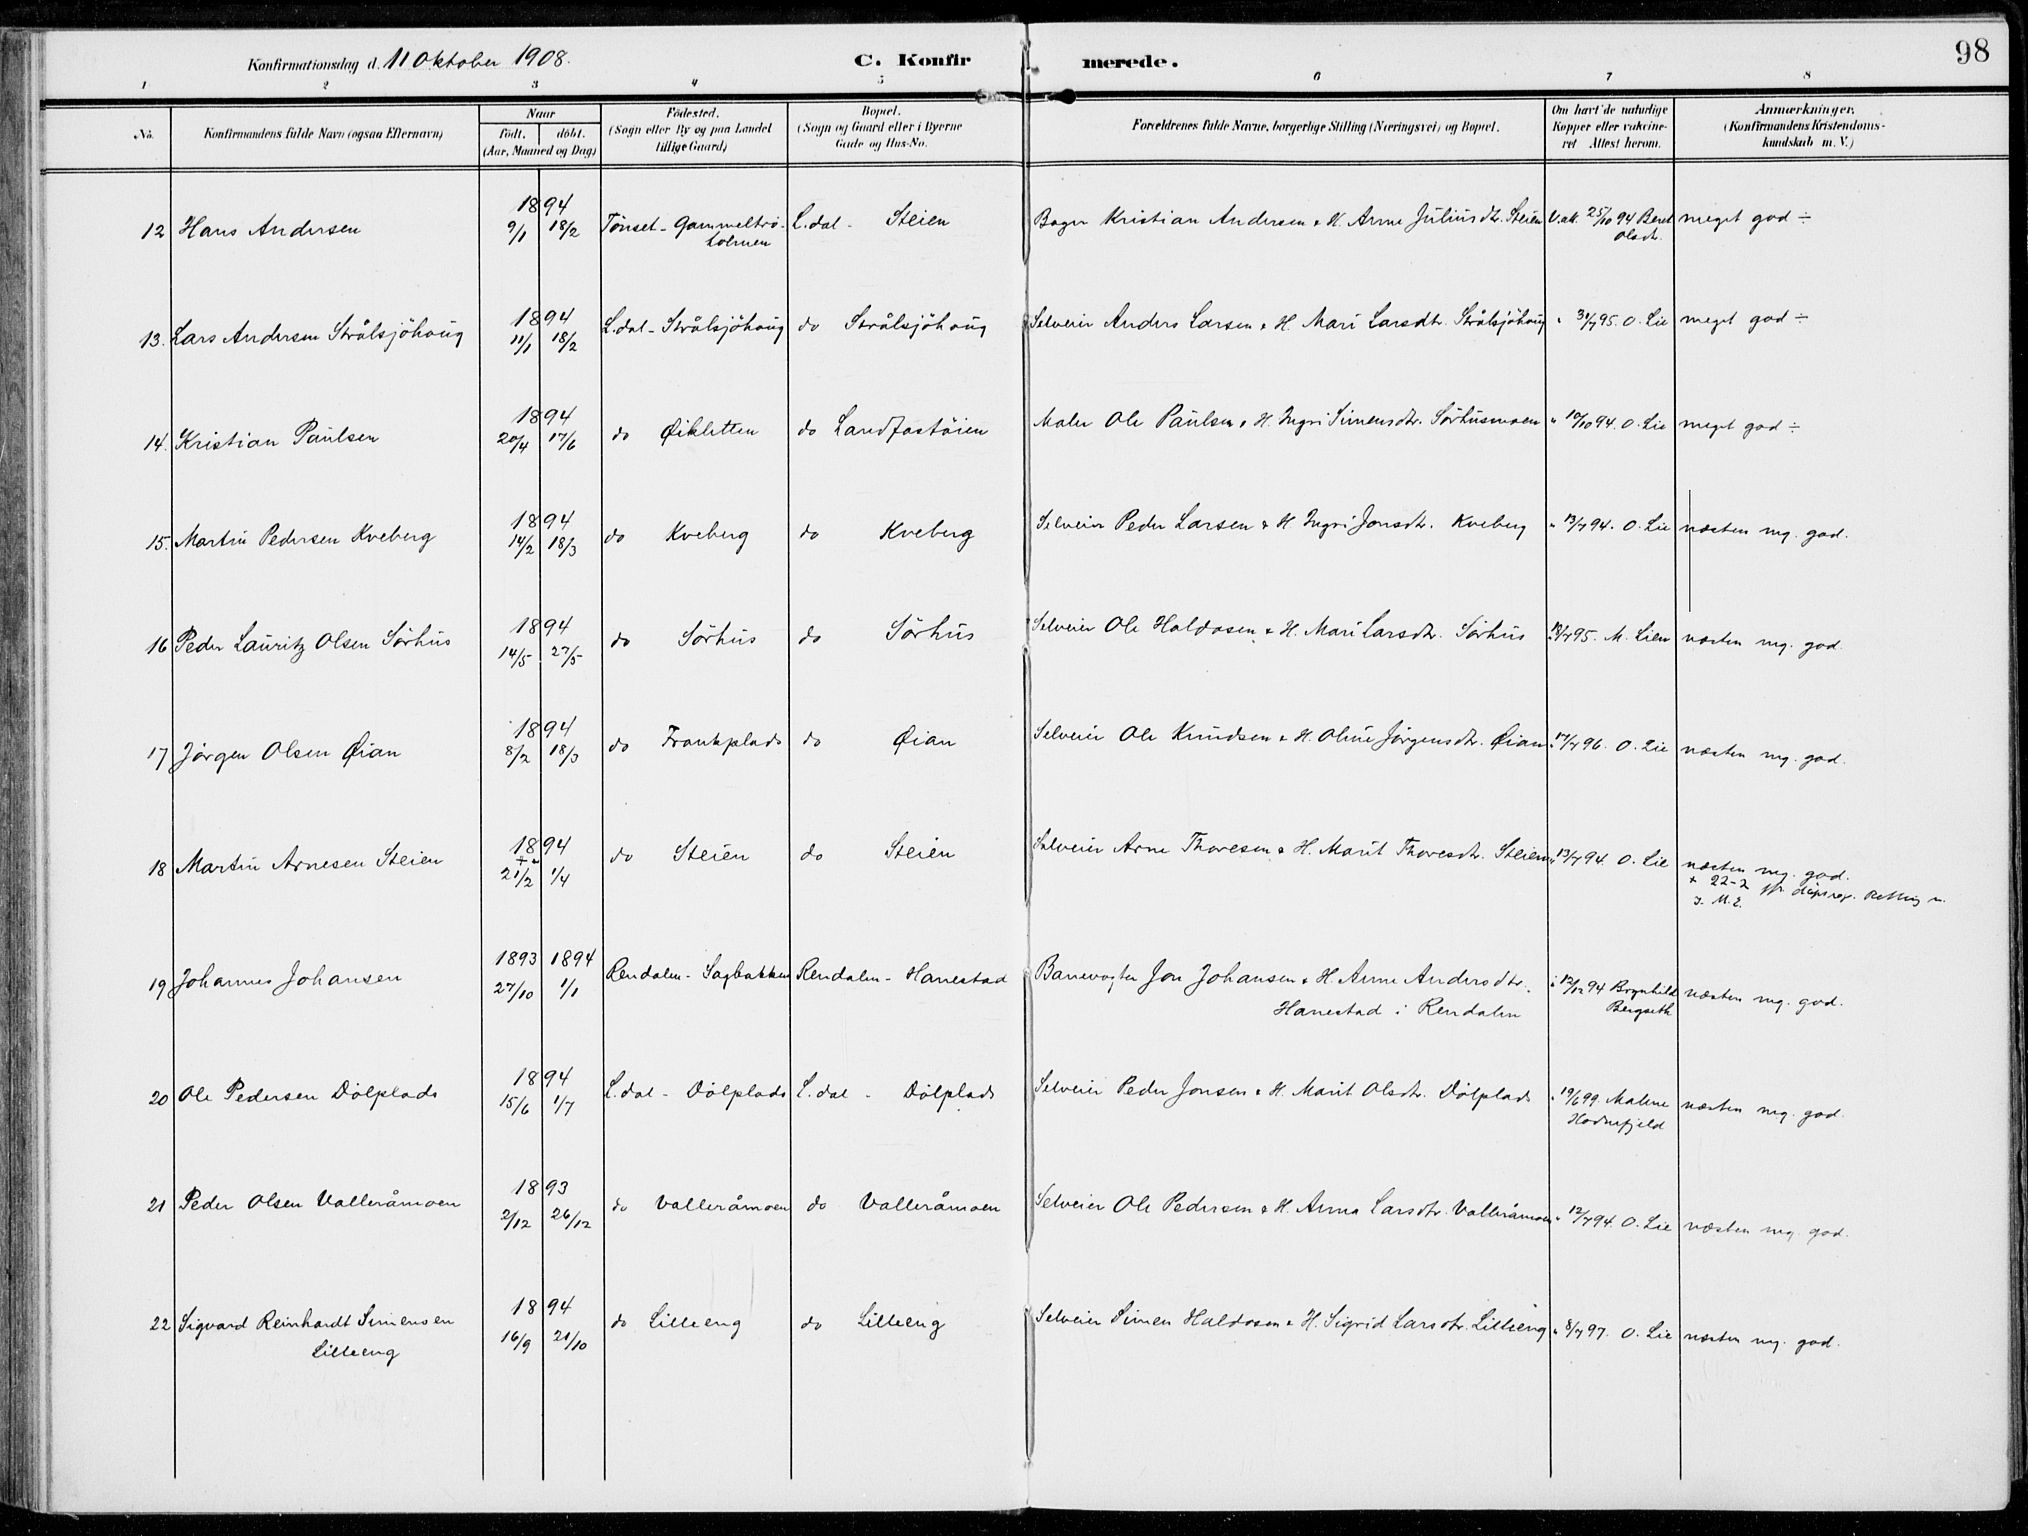 98
Konfirmationsdag d. 11 Oktober 1908.
C. Konfirmerede.
1 2 3 4 5 6 7 8
No.
Konfirmandens fulde Navn (ogsaa Efternavn)
Naar
født. døbt.
(Aar, Maaned og Dag)
Födested.
(Sogn eller By og paa Landet
tillige Gaard)
Bopæl.
(Sogn og Gaard eller i Byerne
Gade og Hus-No.
Forældrenes fulde Navne, borgerlige Stilling (Næringsvei) og Bopæl.
Om havt de naturlige
Kopper eller vakcine-
ret Attest herom.
Anmærkninger.
(Konfirmandens Kristendoms-
kundskab m. V.)
12 Hans Andersen 1894 9/1 18/2 Tönset - Gammeltrö- L.dal - Steien Kristian Andersen & H. Anne Juliusdtr. Steien V. att. 25/10 94 Beret meget god ÷
Olsdtr.
13. Lars Andersen Strålsjöhaug 1894 11/1 18/2 L.dal - Strålsjöhaug do Strålsjöhaug Selveier Anders Larsen & H. Mari Larsdtr. Strålsjöhaug " 31/7 95. O. Lie meget god ÷
14. Kristian Paulsen 1894 20/4 17/6 do Øikletten do Maler Ole Paulsen & H. Ingri Simensdtr. Sörhusmoen " 10/10 94. O. Lie meget god ÷
15. Martin Pedersen Kveberg 1894 14/2 18/3 do Kveberg do Kveberg Selveier Peder Larsen & H. Ingri Jonsdtr. Kveberg " 13/7 94. O. Lie næsten mg. god.
16 Peder Lauritz Olsen Sörhus 1894 14/5 27/5 do Sörhus do Sörhus Selveier Ole Haldosen & H. Mari Larsdtr. Sörhus 18/7 95. M. Lien næsten mg. god.
17 Jörgen Olsen Øian 1894 8/2 18/3 do Frankplads do Øian Selveier Ole Knudsen & H. Oline Jörgensdtr. Øian 17/7 96. O. Lie næsten mg. god.
18 Martin Arnesen Steien 1894 + 21/2 1/4 do Steien do Steien Selveier Arne Thoresen & H. Marit Thoresdtr. Steien " 13/7 94. O. Lie næsten mg. god.
+ 22-2
19 Johannes Johansen 1893 27/10 1894 1/1 Rendalen - Sagbakken Rendalen - Hanestad Banevogter Jon Johansen & H. Anne Andersdtr. " 12/12 94 Brynhild næsten mg. god.
Hanestad i Rendalen Bergseth
20 Ole Pedersen Dölplads 1894 15/6 1/7 L.dal - Dölplads L.dal - Dölplads Selveier Peder Jonsen & H. Marit Olsdtr. Dölplads " 19/6 99. Malene næsten mg. god.
21 Peder Olsen Valleråmoen 1893 2/12 26/12 do Valleråmoen do Valleråmoen Selveier Ole Pedersen & H. Anna Larsdtr. Valleråmoen " 12/7 94. O. Lie næsten mg. god.
22 Sigvard Reinhardt Simensen 1894 16/9 21/10 do Lilleeng do Lilleeng Selveier Simen Haldosen & H. Sigrid Larsdtr. Lilleeng " 8/7 97. O. Lie næsten mg. god.
Lilleeng